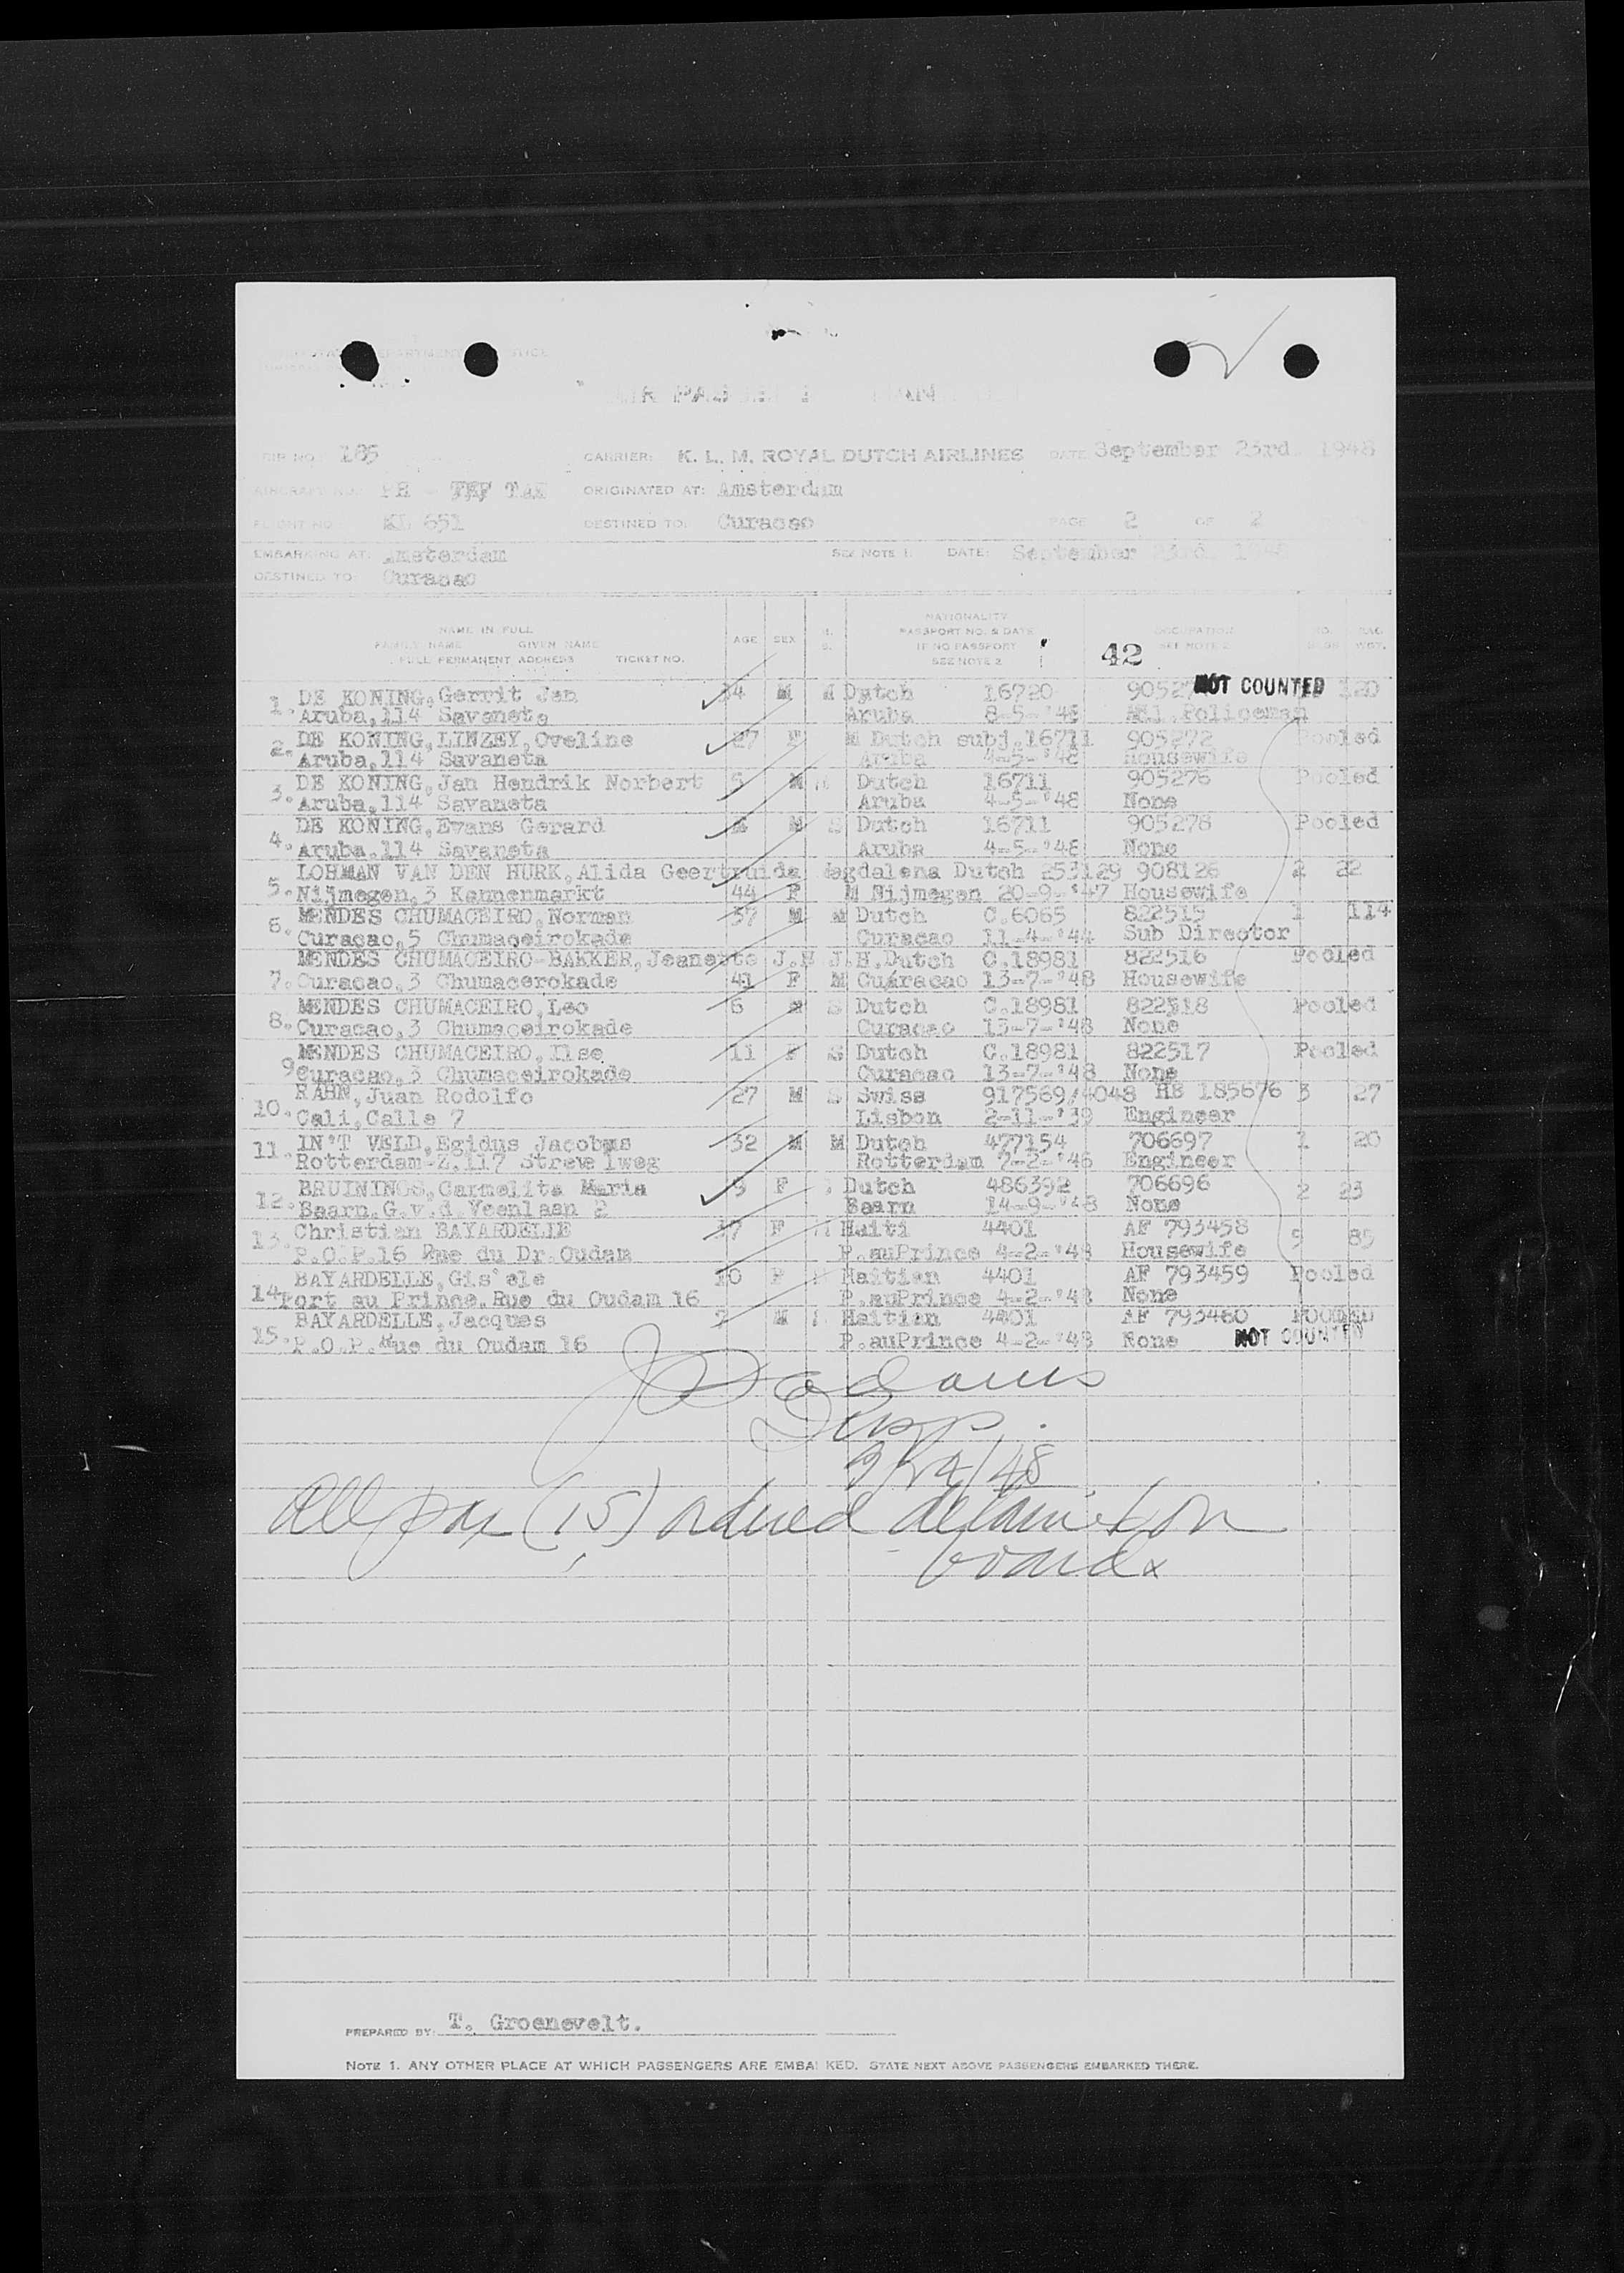 185
CARRIER: K. L. M. ROYAL DUTCH AIRLINES DATE September 23rd. 1948
AIRCRAFT NO. PH - ORIGINATED AT: Amsterdam
FLIGHT NO. KL 651 DESTINED TO: Curacao PAGE 2 OF 2
EMBARKING AT: Amsterdam SEE NOTE 1. DATE: September 23rd. 1948
DESTINED TO: Curacao
NAME IN FULL
FAMILY NAME GIVEN NAME
FULL PERMANENT ADDRESS TICKET NO.
AGE SEX
NATIONALITY
PASSPORT NO. & DATE
IF NO PASSPORT
SEE NOTE 2
42
OCCUPATION
SEE NOTE 2
1. DE KONING, Gerrit Jan 34 M M Dytch 16720 NOT COUNTED 120
Aruba, 114 Savaneta Aruba 8-5-'48 Policeman
2. DE KONING, LINZEY, Oveline 27 F M Dutch subj. 16711 905272 Pooled
Aruba, 114 Savaneta Aruba 4-5-'48 Housewife
3. DE KONING, Jan Hendrik Norbert 5 M Dutch 16711 905276 Pooled
Aruba, 114 Savaneta Aruba 4-5-'48 None
4. DE KONING, Evans Gerard M S Dutch 16711 905278 Pooled
Aruba. 114 Savaneta Aruba 4-5-'48 None
5. LOHMAN VAN DEN HURK, Alida Geertruida Magdalena Dutch 253129 908126 2 22
Nijmegen, 3 Kannenmarkt 44 F M Nijmegen 20-9-'47 Housewife
6. MENDES CHUMACEIRO, Norman 37 M M Dutch C.6065 822515 1 114
Curaçao, 5 Chumaçeirokade Curacao 11-4-'44 Sub Director
7. MENDES CHUMACEIRO-BAKKER, Jeanette J.H J.H. Dutch C.18981 822516 Pooled
Curacao, 3 Chumacerokade 41 F M Cuáracao 13-7-'48 Housewife
8. MENDES CHUMACEIRO, Leo 6 M S Dutch C.18981 822518 Pooled
Curacao, 3 Chumaceirokade Curacao 13-7-'48 None
9. MENDES CHUMACEIRO, Ilse 11 F S Dutch C.18981 822517 Pooled
Curacao, 3 Chumaceirokade Curacao 13-7-'48 None
10. RAHN, Juan Rodolfo 27 M S Swiss 917569/4048 HB 185676 3 27
Cali, Calle 7 Lisbon 2-11-'39 Engineer
11. IN'T VELD, Egidus Jacobus 32 M M Dutch 477154 706697 1 20
Rotterdam-Z. 117 Streve lweg Rotterdam 7-2-'46 Engineer
12. BRUININGS, Carmelita Maria 9 F Dutch 486392 706696 2 23
Baarn. G.v.d. Veenlaan 2 Baarn 14-9-'48 None
13. Christian BAYARDELLE F Haiti 4401 AF 793458 85
P.O.P. 16 Rue du Dr. Oudam P.auPrince 4-2-'48 Housewife
14. BAYARDELLE, Gis`ele 10 F Haitian 4401 AF 793459 Pooled
Port au Prince. Rue du Oudam 16 P.auPrince 4-2-'48 None
15. BAYARDELLE, Jacques M Haitian 4401 AF 793460 POOLED
P.O.P. Rue du Oudam 16 P.auPrince 4-2-'48 None NOT COUNTED
Adams
Insp.
9/24/48
All pax (15) ordered detained on
board
PREPARED BY: T. Groenevelt.
NOTE 1. ANY OTHER PLACE AT WHICH PASSENGERS ARE EMBARKED. STATE NEXT ABOVE PASSENGERS EMBARKED THERE.